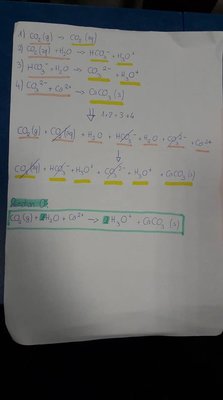 1) CO₂(g) → CO₂(aq)
2) CO₂(aq) + H₂O → HCO₃⁻ + H₃O⁺
3) HCO₃⁻ + H₂O → CO₃²⁻ + H₃O⁺
4) CO₃²⁻ + Ca²⁺ → CaCO₃(s)
⇓ 1+2+3+4
CO₂(g) + CO₂(aq) + H₂O + HCO₃⁻ + H₂O + CO₃²⁻ + Ca²⁺
↓
CO₂(aq) + HCO₃⁻ + H₃O⁺ + CO₃²⁻ + H₃O⁺ + CaCO₃(s)
CO₂(g) + H₂O + Ca²⁺ → 2 H₃O⁺ + CaCO₃(s)